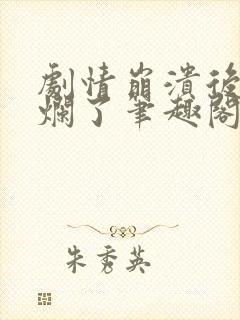 劇情崩潰後
爛了筆趣閣
朱秀英